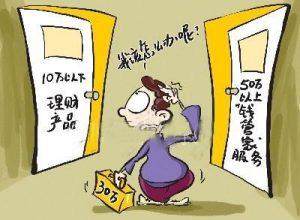 我该怎么办呢?
10万以下
理财
产品
50万
以上
“钱
管家”
服务
30万